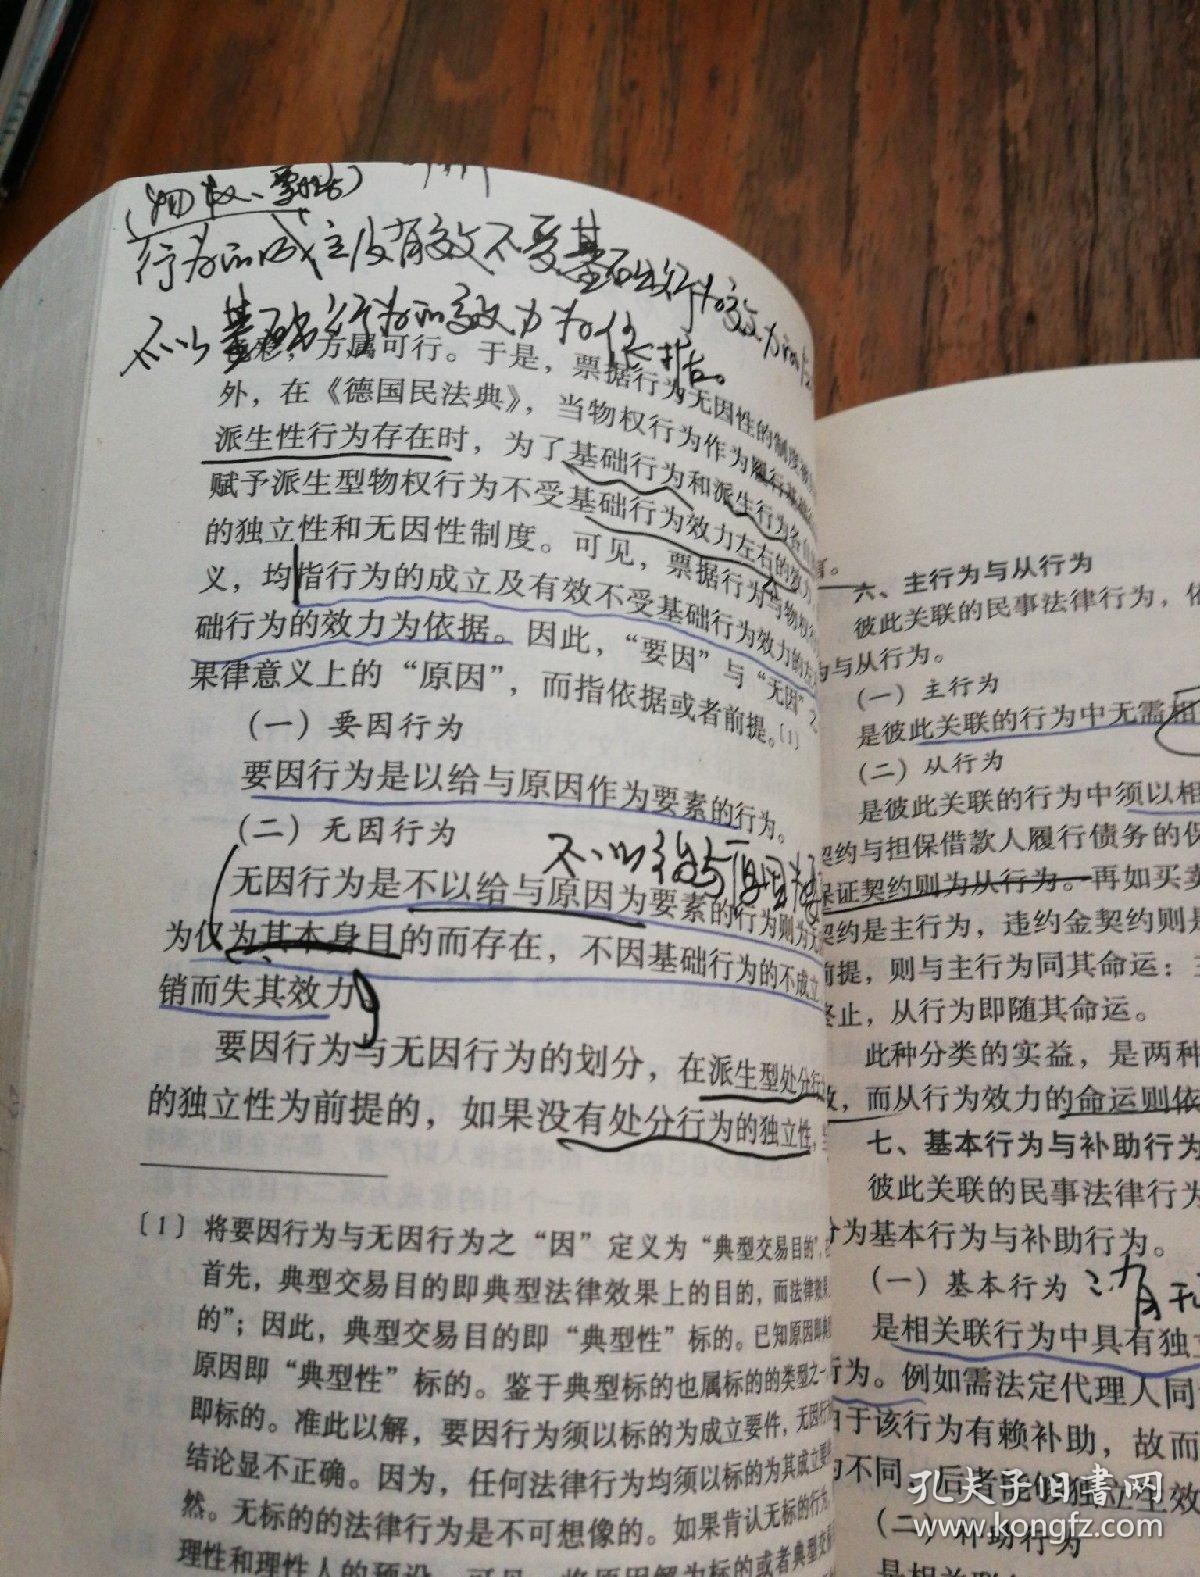 行为的成立及有效不受基础行为效力的
不以基础行为的效力为依据。
方属可行。于是，票据行为无因性的制度
外，在《德国民法典》，当物权行为作为履行
派生性行为存在时，为了基础行为和派生行为各
赋予派生型物权行为不受基础行为效力左右的效力
的独立性和无因性制度。可见，票据行为与物权
义，均指行为的成立及有效不受基础行为效力的左
础行为的效力为依据。因此，“要因”与“无因”之
果律意义上的“原因”，而指依据或者前提。〔1〕
（一）要因行为
要因行为是以给与原因作为要素的行为。
（二）无因行为
不以给与原因为要
无因行为是不以给与原因为要素的行为则为无
为仅为其本身目的而存在，不因基础行为的不成立
销而失其效力
要因行为与无因行为的划分，在派生型处分行
的独立性为前提的，如果没有处分行为的独立性，
〔1〕将要因行为与无因行为之“因”定义为“典型交易目的”，
首先，典型交易目的即典型法律效果上的目的，而法律效果
的”；因此，典型交易目的即“典型性”标的。已知原因即典
原因即“典型性”标的。鉴于典型标的也属标的的类型之一
即标的。准此以解，要因行为须以标的为成立要件，无因行
结论显不正确。因为，任何法律行为均须以标的为其成立要
然。无标的的法律行为是不可想像的。如果肯认无标的行为，
理性和理性人的预设。可见，将原因解为标的或者典型交易
六、主行为与从行为
彼此关联的民事法律行为，依
为与从行为。
（一）主行为
是彼此关联的行为中无需相
（二）从行为
是彼此关联的行为中须以相
契约与担保借款人履行债务的保
保证契约则为从行为。再如买卖
契约是主行为，违约金契约则是
前提，则与主行为同其命运：主
终止，从行为即随其命运。
此种分类的实益，是两种
效，而从行为效力的命运则依
七、基本行为与补助行为
彼此关联的民事法律行为
分为基本行为与补助行为。
（一）基本行为
是相关联行为中具有独立
行为。例如需法定代理人同
由于该行为有赖补助，故而
的不同，后者能够独立生效
（二）补助行为
是相关联
孔夫子旧书网
www.kongfz.com